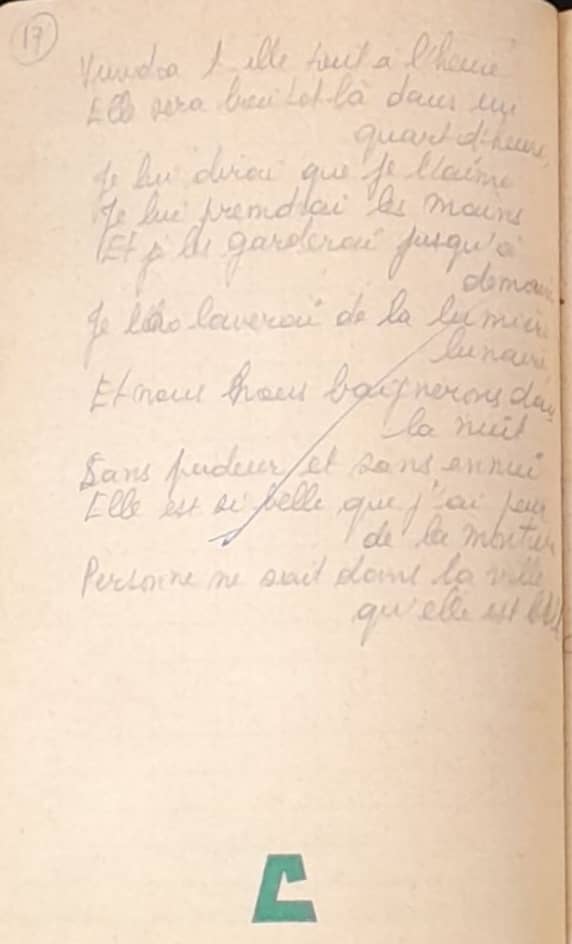 17
Viendra t elle tout a l'heure
Elle sera bientot là dans un
quart d'heure
Je lui dirai que je l'aime
Je lui prendrai les mains
Et je les garderai jusqu'a
demain
Je la laverai de la lumiere
lunaire
Et nous nous baignerons dans
la nuit
Sans pudeur et sans ennui
Elle est si belle que j'ai peur
de la montrer
Personne ne sait dans la ville
qu'elle est